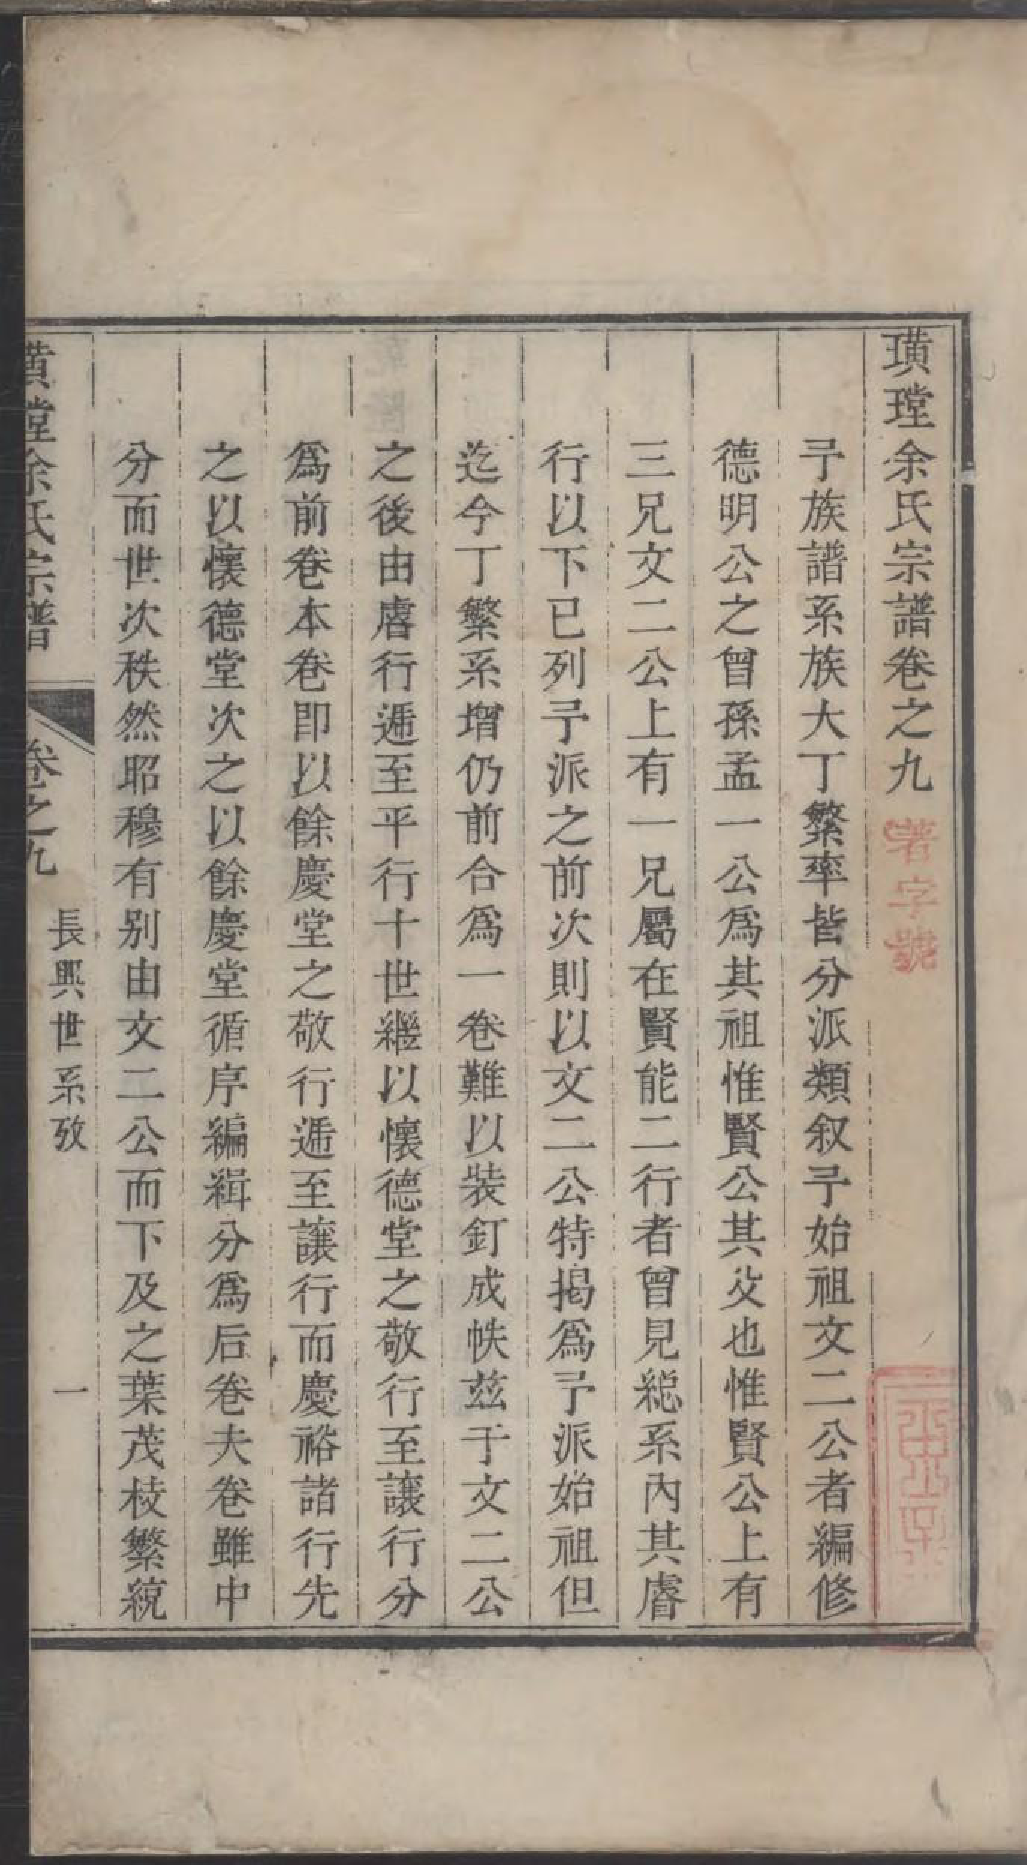 璜瑝余氏宗譜卷之九
著字號
予族譜系族大丁繁率皆分派類叙予始祖文二公者編修
德明公之曾孫孟一公爲其祖惟賢公其父也惟賢公上有
三兄文二公上有一兄屬在賢能二行者曾見緫系內其睿
行以下已列予派之前次則以文二公特揭爲予派始祖但
迄今丁繁系增仍前合爲一卷難以裝釘成帙茲于文二公
之後由睿行遞至平行十世繼以懷德堂之敬行至讓行分
爲前卷本卷即以餘慶堂之敬行遞至讓行而慶裕諸行先
之以懷德堂次之以餘慶堂循序編緝分爲后卷夫卷雖中
分而世次秩然昭穆有别由文二公而下及之葉茂枝繁統
璜瑝余氏宗譜
卷之九
長興世系攷
一